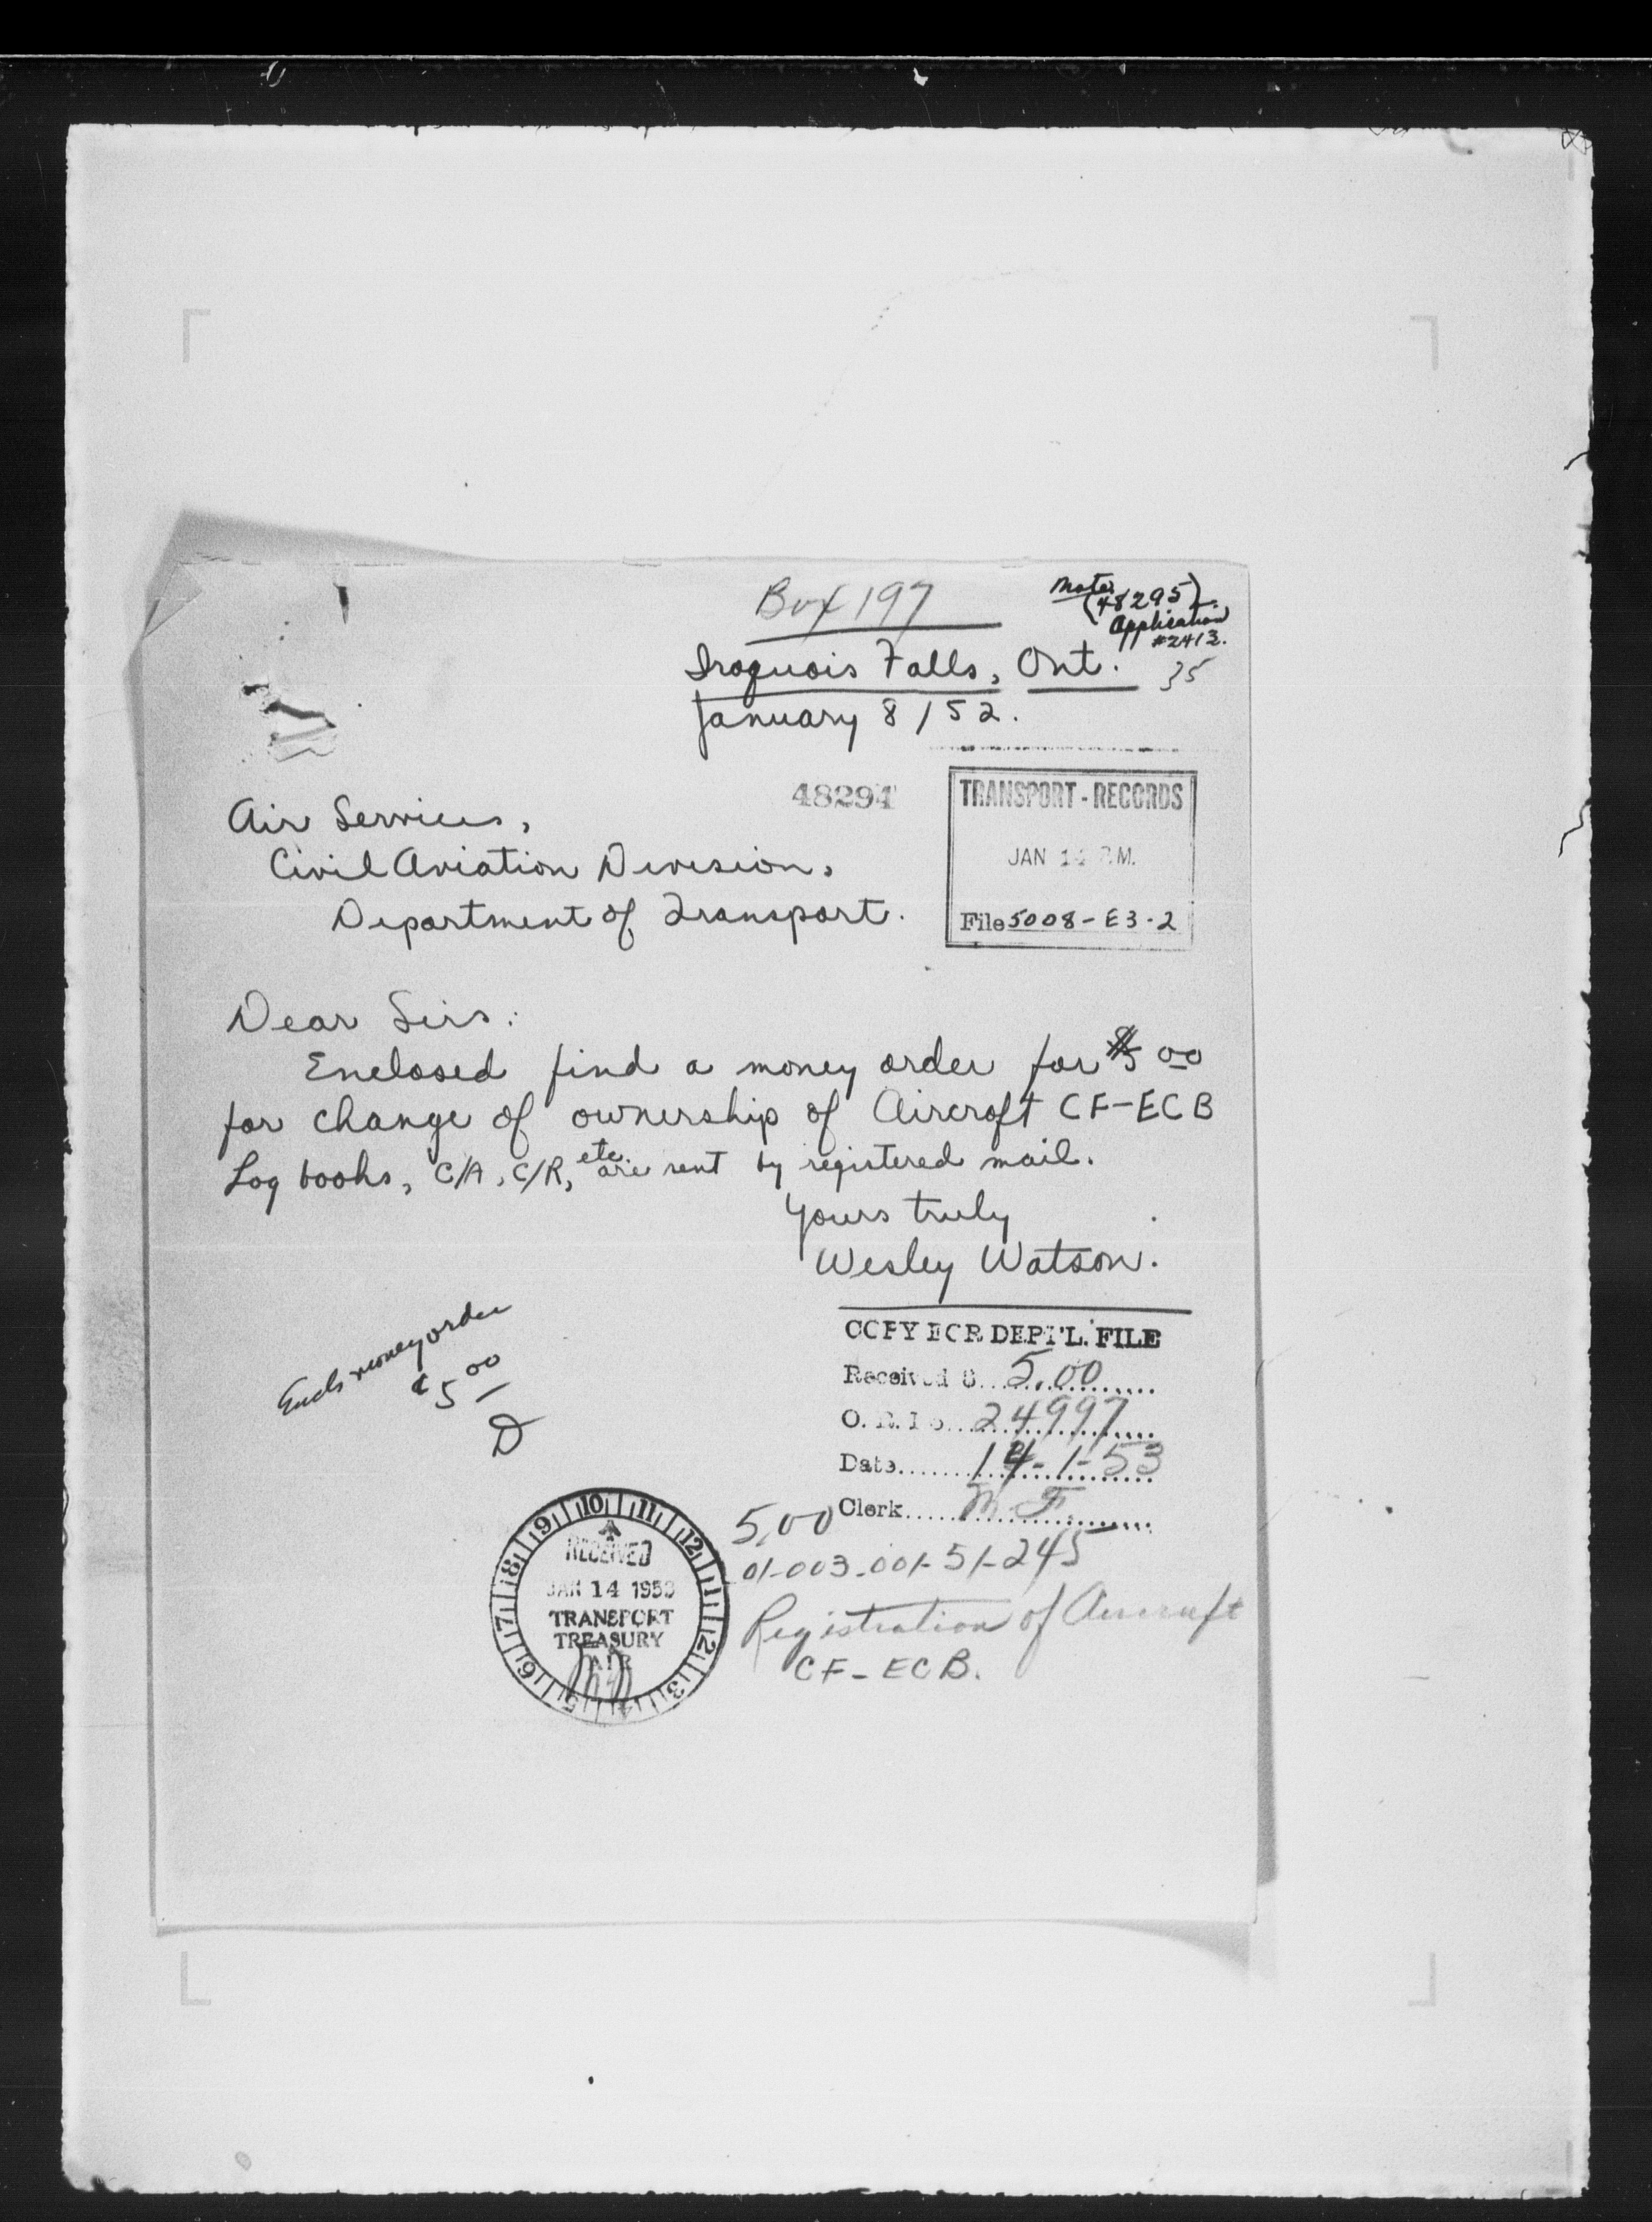 Box 197
Note
(48295).
Application
#2413.
Iroquois Falls, Ont.
35
January 8/52.
48294
TRANSPORT - RECORDS
JAN 14 P.M.
File 5008-E3-2
Air Services,
Civil Aviation Division,
Department of Transport.
Dear Sirs:
Enclosed find a money order for $5 00
for change of ownership of Aircraft CF-ECB
Log books, C/A, C/R, etc. are sent by registered mail.
Yours truly
Wesley Watson.
Encls money order
$5 00
COPY FOR DEPT'L. FILE
Received $ 5.00
O.R. No. 24997
Date 14-1-53
Clerk M.F.
5.00
01-003-001-51-245
Registration of Aircraft
CF-ECB.
9 10 11 12 1 2 3 4 5 6 7 8
RECEIVED
JAN 14 1953
TRANSPORT
TREASURY
AIR